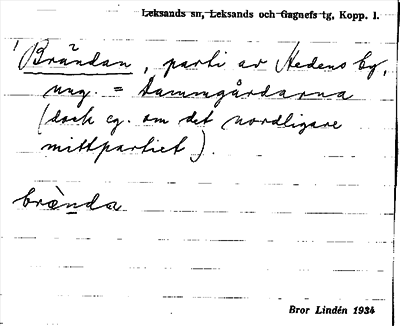 Leksands sn, Leksands och Gagnefs tg, Kopp. l.
1 Brändan, parti av Hedens by,
ung. = Dammgårdarna
(dock eg. om det nordligare
mittpartiet).
brènda
Bror Lindén 1934